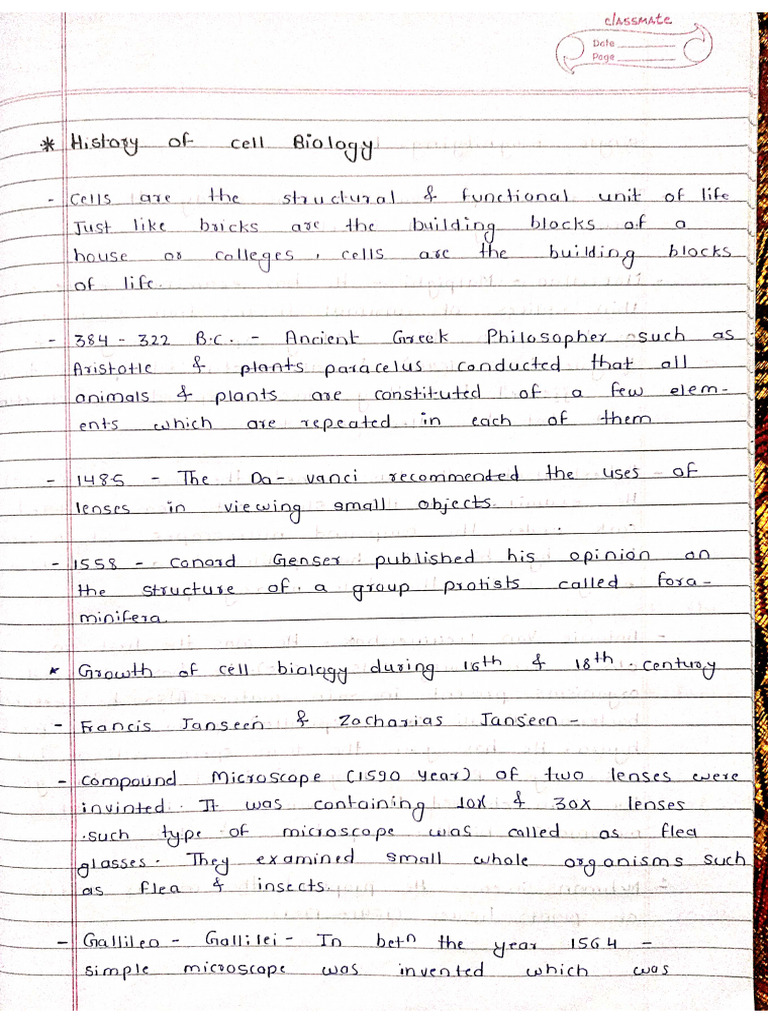 classmate
Date
Page
* History of cell Biology
- Cells are the structural & functional unit of life
Just like bricks are the building blocks of a
house or colleges, cells are the building blocks
of life.
- 384 - 322 B.C. - Ancient Greek Philosopher such as
Aristotle & plants paracelus conducted that all
animals & plants are constituted of a few elem-
ents which are repeated in each of them
- 1485 - The Da-vanci recommended the uses of
lenses in viewing small objects.
- 1558 - Conard Genser published his opinion on
the structure of a group protists called fora-
minifera.
* Growth of cell biology during 16th & 18th century
- Francis Janseen & Zacharias Janseen -
- Compound Microscope (1590 year) of two lenses were
invinted. It was containing 10x & 30x lenses
such type of microscope was called as flea
glasses. They examined small whole organisms such
as flea & insects.
- Gallileo - Gallilei - In betn the year 1564 -
simple microscope was invented which was